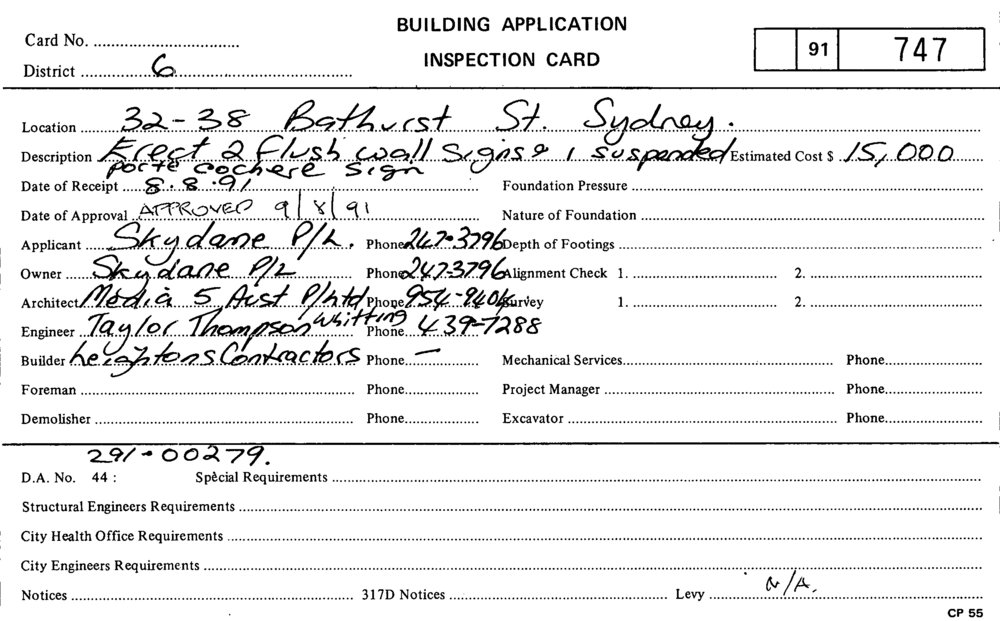 BUILDING APPLICATION
Card No.
91 747
INSPECTION CARD
District 6
Location 32-38 Bathurst St. Sydney.
Description Erect 2 flush wall signs & 1 suspended Estimated Cost $ 15,000
porte cochere sign
Date of Receipt 8.8.91 Foundation Pressure
Date of Approval APPROVED 9/8/91 Nature of Foundation
Applicant Skydane P/L. Phone 247-3796 Depth of Footings
Owner Skydane P/L Phone 247-3796 Alignment Check 1. 2.
Architect Media 5 Aust P/Ltd Phone 954-9404 Survey 1. 2.
Engineer Taylor Thompson Whitting Phone 439-7288
Builder Leightons Contractors Phone — Mechanical Services Phone
Foreman Phone Project Manager Phone
Demolisher Phone Excavator Phone
291-00279.
D.A. No. 44 : Special Requirements
Structural Engineers Requirements
City Health Office Requirements
City Engineers Requirements
Notices 317D Notices Levy N/A.
CP 55